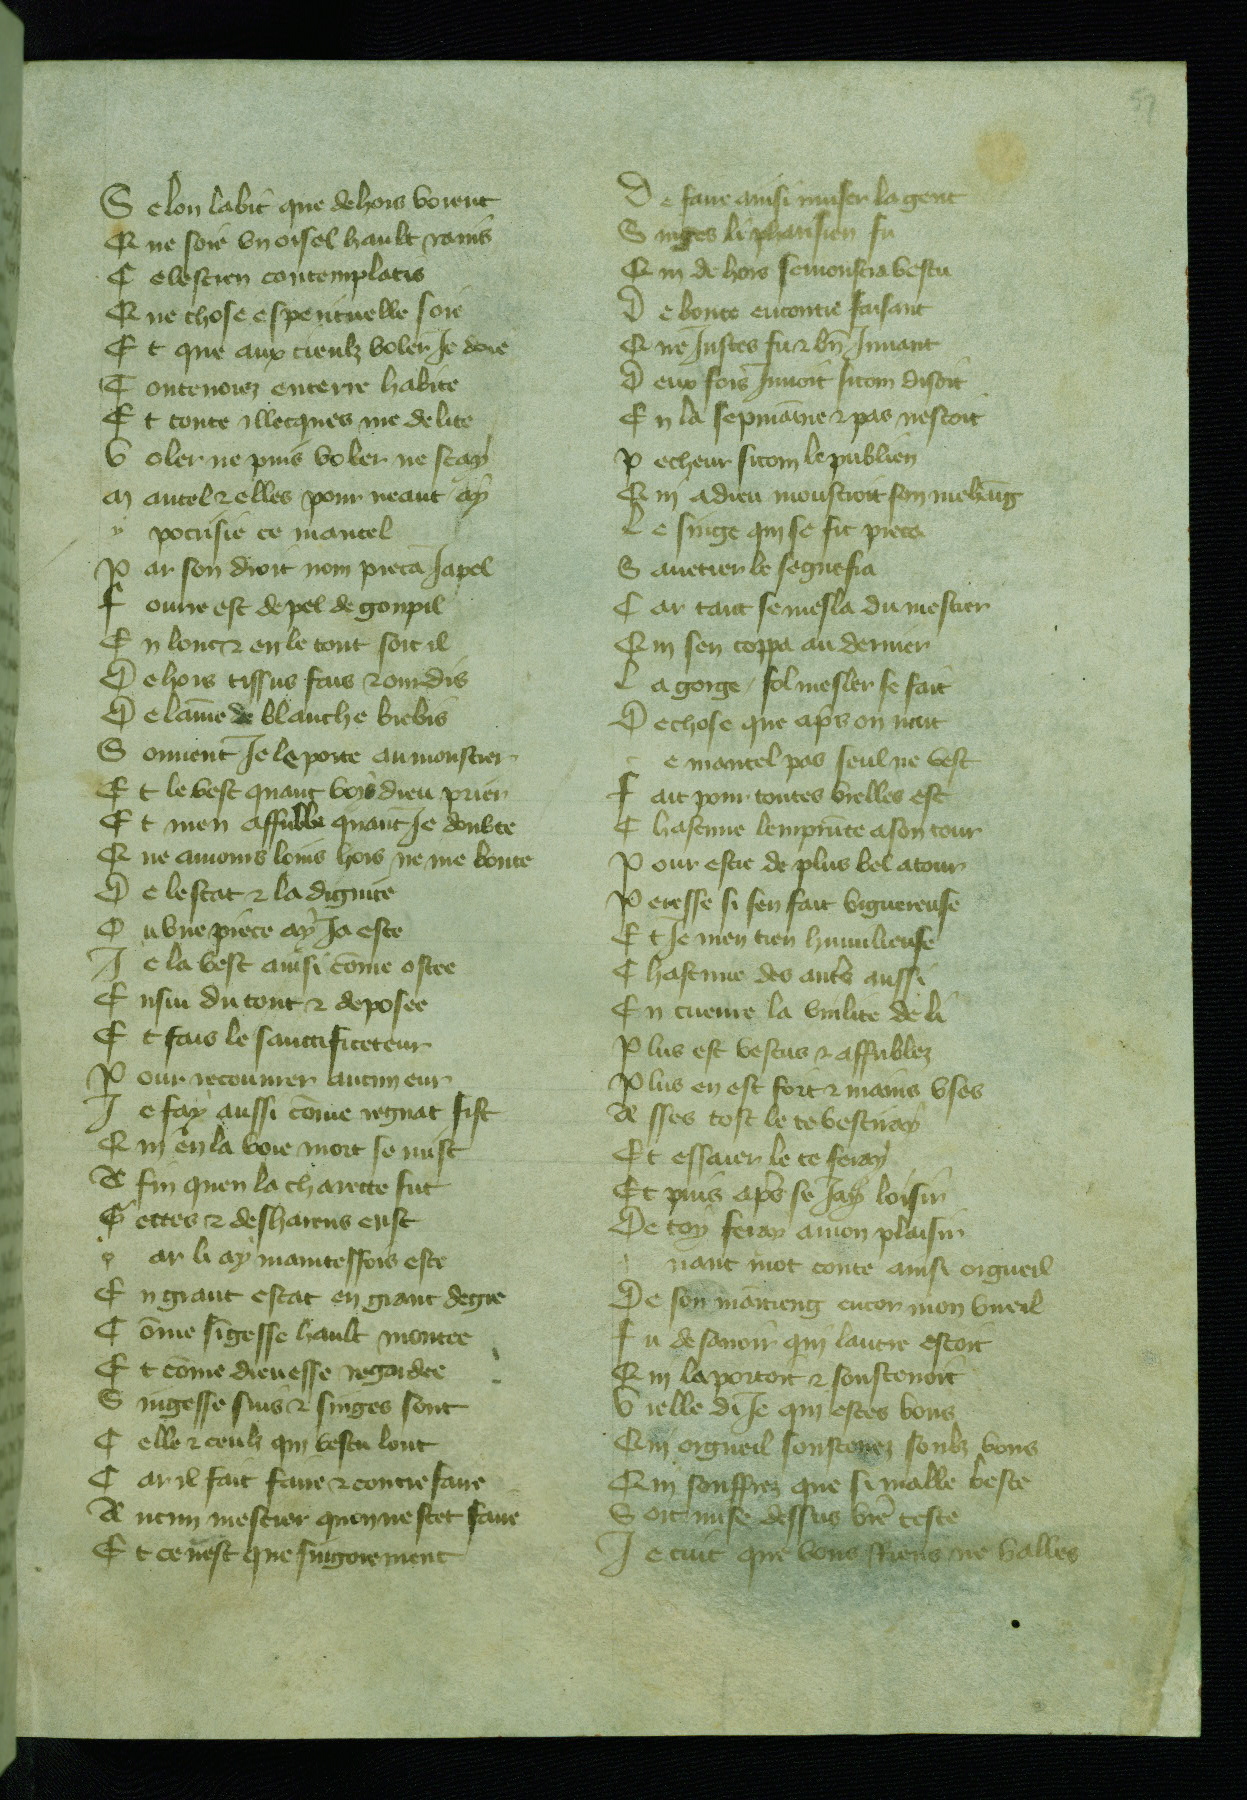 57
Selon labit que dehors voient
Que soie vn oisel hault ramis
Celestien contemplatis
Que chose esperituelle soie
Et que aux cieulx voler Je doie
Contenoiez enterre habite
Et toute illecques me delite
Voler ne puis voler ne scay
Mantel & elles pour neant ay
ypocrisie ce mantel
Par son droit nom pieca Japel
Fourre est de pel de goupil
En lont & en le tout soit il
Dehors tissus fais & ourdis
De laine de blanche brebis
Souuent Je le porte au moustier
Et le vest quant voys dieu prier
Et men affuble quant Je doubte
Que aucuns louis hors ne me boute
De lestat & la dignite
Ou vne piece ay Ja este
Je la vest ainsi come ostee
Ensui du tout & deposee
Et fais le sanctificeteur
Pour recouurer aucun eur
Je fay aussi come regnat fist
Qui en la voie mort se mist
Afin quen la charette fut
Gettes & des harens eust
par li ay maintesfois este
En grant estat en grant degre
Come singesse hault montee
Et come dieuesse regardee
Singesse suis & singes sont
Celle & ceulx qui vestu lont
Car il fait faire & contrefaire
Aucun mestier quon ne scet faire
Et ce nest que singoiement
De faire ainsi muser la gent
Singes li pharisien fu
Qui dehors se monstra vestu
De bonte encontre faisant
Que Justes fu & bn Juuant
Deux fois Junoit sicom disoit
En la sepmaine & pas nestoit
Pecheur sicom le publien
Qui a dieu monstroit son mehaing
Le singe qui se fit pieca
Sauetier le segnefia
Car tant se mesla du mestier
Quil sen coppa au dernier
La gorge / fol mesler se fait
De chose que aps on nait
e mantel pas seul ne vest
Fait pour toutes vielles est
Chascune lemprunte a son tour
Pour estre de plus bel atour
Peresse si sen fait viguereuse
Et Je men tien humilieuse
Chascune des autrs aussi
En cueuure la vilite de li
Plus est vestus & affublez
Plus en est fort & mains vses
Asses tost le te vestiray
Et essaier le te feray
Et puis aps se Jay loisir
De toy feray a mon plaisir
nant mot conte ainsi orgueil
De son maintieng encor mon vueil
Fu de sauoir qui lautre estoit
Qui la portoit & soustenoit
Vielle di Je qui estes vous
Qui orgueil soustenez soubz vous
Qui souffrez que si malle beste
Soit mise dessus vre teste
Je cuit que vous Riens ne valles